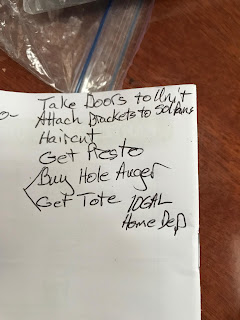 Take Doors to Unit
Attach Brackets to
Haircut
Get Pesto
Buy Hole Auger
Get Tote IDEAL
Home Dep